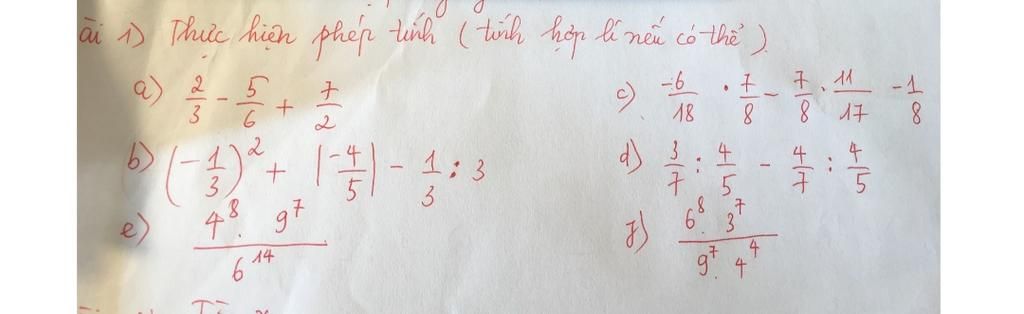 ài 1) Thực hiện phép tính (tính hợp lí nếu có thể)
a) 2/3 - 5/6 + 7/2
c) -6/18 . 7/8 - 7/8 . 11/17 - 1/8
b) (-1/3)² + |-4/5| - 1/3 : 3
d) 3/7 : 4/5 - 4/7 : 4/5
e) 4⁸. 9⁷ / 6¹⁴
f) 6⁸. 3⁷ / 9⁷. 4⁴